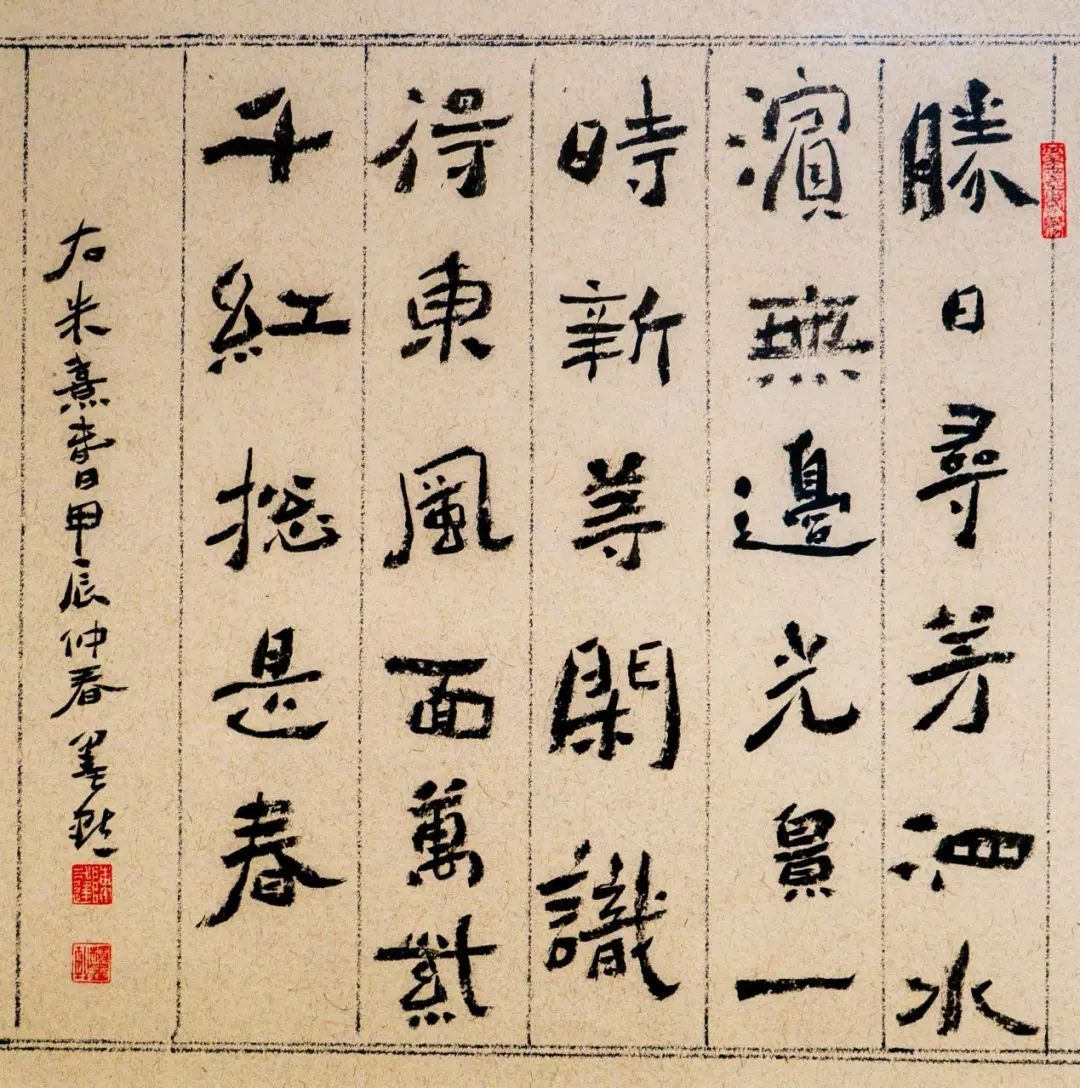 勝日尋芳泗水
濱無邊光景一
時新等閑識
得東風面萬紫
千紅總是春
右朱熹春日甲辰仲春